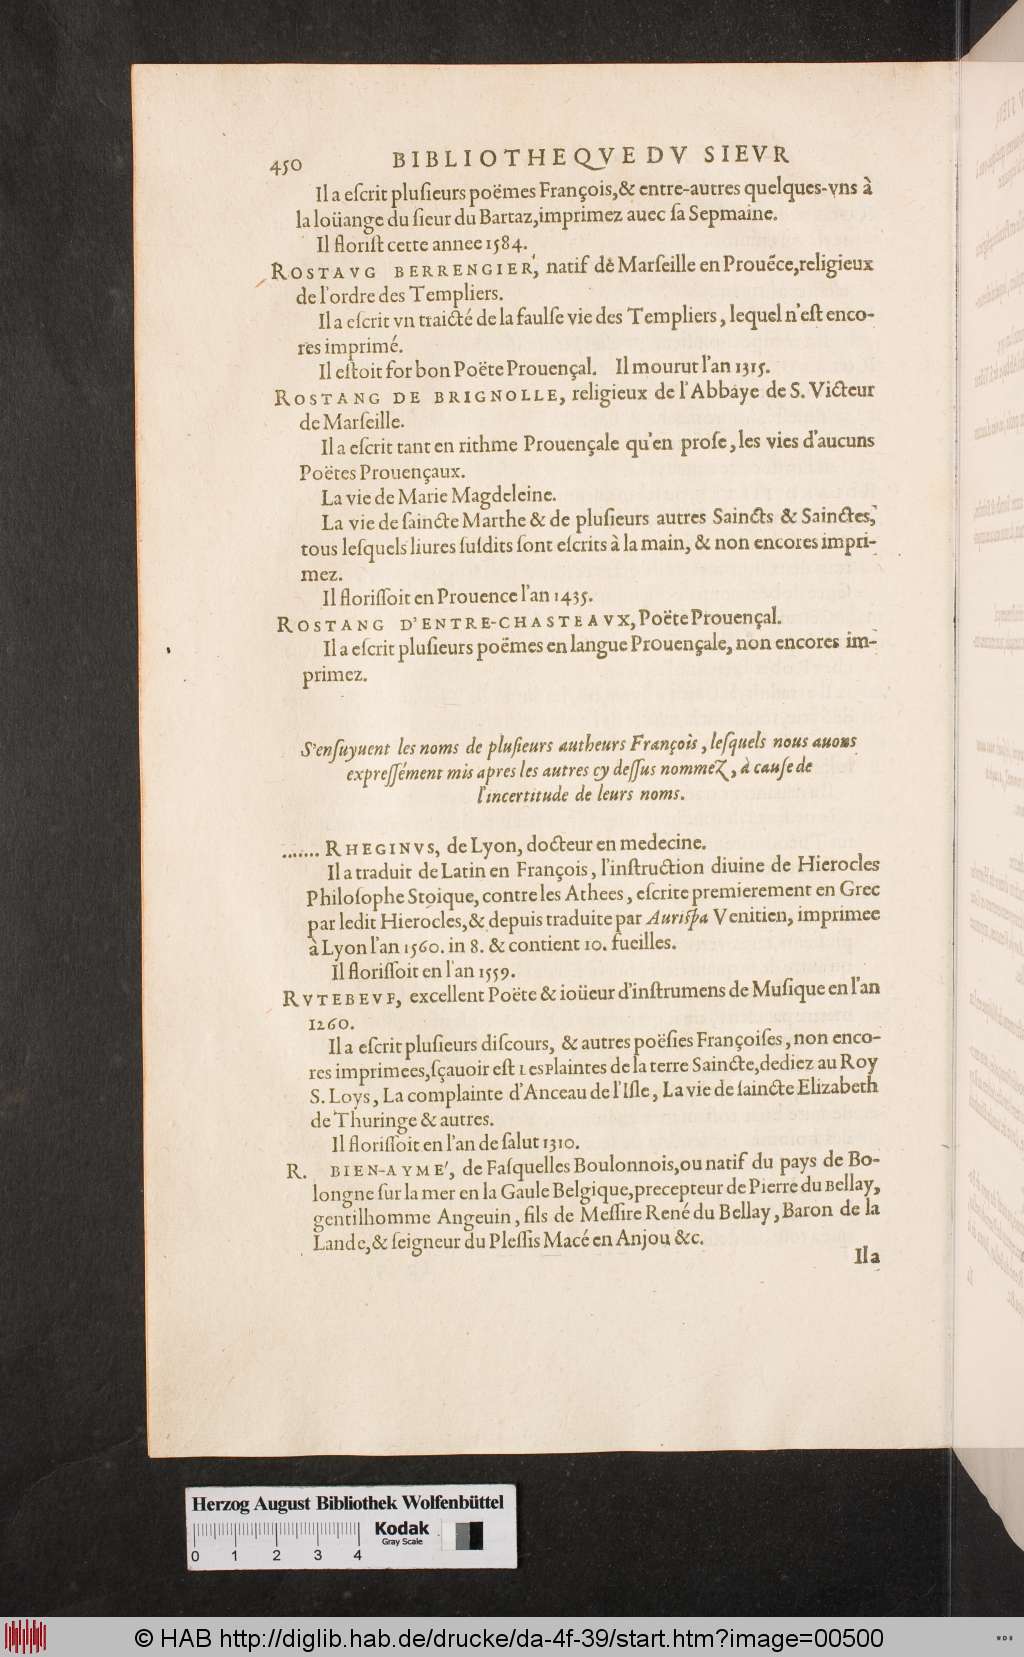 450 BIBLIOTHEQVE DV SIEVR
Il a eſcrit pluſieurs poëmes François,& entre-autres quelques-vns à
la loüange du ſieur du Bartaz,imprimez auec ſa Sepmaine.
Il floriſt cette annee 1584.
ROSTAVG BERRENGIER, natif de Marſeille en Prouẽce,religieux
de l'ordre des Templiers.
Il a eſcrit vn traicté de la faulſe vie des Templiers, lequel n'eſt enco-
res imprimé.
Il eſtoit for bon Poëte Prouençal. Il mourut l'an 1315.
ROSTANG DE BRIGNOLLE, religieux de l'Abbaye de S. Victeur
de Marſeille.
Il a eſcrit tant en rithme Prouençale qu'en proſe, les vies d'aucuns
Poëtes Prouençaux.
La vie de Marie Magdeleine.
La vie de ſaincte Marthe & de pluſieurs autres Saincts & Sainctes,
tous leſquels liures ſuſdits ſont eſcrits à la main, & non encores impri-
mez.
Il floriſſoit en Prouence l'an 1435.
ROSTANG D'ENTRE-CHASTEAVX, Poëte Prouençal.
Il a eſcrit pluſieurs poëmes en langue Prouençale, non encores im-
primez.
S'enſuyuent les noms de pluſieurs autheurs François, leſquels nous auons
expreſſément mis apres les autres cy deſſus nommez, à cauſe de
l'incertitude de leurs noms.
....... RHEGINVS, de Lyon, docteur en medecine.
Il a traduit de Latin en François, l'inſtruction diuine de Hierocles
Philoſophe Stoique, contre les Athees, eſcrite premierement en Grec
par ledit Hierocles,& depuis traduite par Auriſpa Venitien, imprimee
à Lyon l'an 1560. in 8. & contient 10. fueilles.
Il floriſſoit en l'an 1559.
RVTEBEVF, excellent Poëte & ioüeur d'inſtrumens de Muſique en l'an
1260.
Il a eſcrit pluſieurs diſcours, & autres poëſies Françoiſes, non enco-
res imprimees,ſçauoir eſt Les plaintes de la terre Saincte,dediez au Roy
S. Loys, La complainte d'Anceau de l'Iſle, La vie de ſaincte Elizabeth
de Thuringe & autres.
Il floriſſoit en l'an de ſalut 1310.
R. BIEN-AYME', de Faſquelles Boulonnois,ou natif du pays de Bo-
longne ſur la mer en la Gaule Belgique,precepteur de Pierre du Bellay,
gentilhomme Angeuin, fils de Meſſire René du Bellay, Baron de la
Lande,& ſeigneur du Pleſſis Macé en Anjou &c.
Il a
Herzog August Bibliothek Wolfenbüttel
0 1 2 3 4
Kodak
Gray Scale
© HAB http://diglib.hab.de/drucke/da-4f-39/start.htm?image=00500